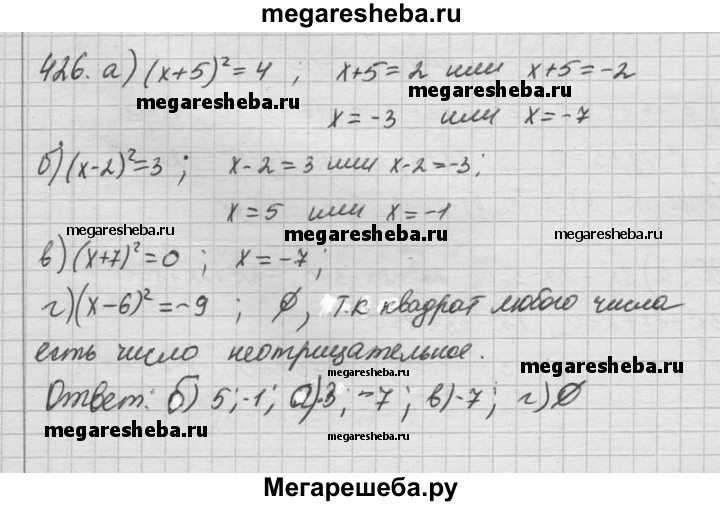 megaresheba.ru
426. а) (x+5)²=4 ; x+5=2 или x+5=-2
megaresheba.ru megaresheba.ru
x=-3 или x=-7
б) (x-2)²=3 ; x-2=3 или x-2=-3;
x=5 или x=-1
megaresheba.ru megaresheba.ru megaresheba.ru
в) (x+7)²=0 ; x=-7;
г) (x-6)²=-9 ; ∅, т.к квадрат любого числа
есть число неотрицательное.
megaresheba.ru
Ответ: б) 5; -1; а)-3; -7; в)-7; г) ∅
megaresheba.ru megaresheba.ru megaresheba.ru
Мегарешеба.ру